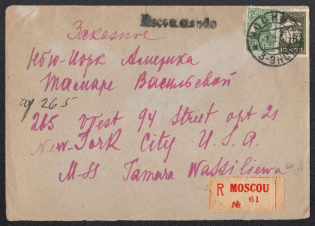 Заказное
Нью-Йорк Америка
Тамаре Васильевой
265
265 West 94 Street opt 21
New York City U.S.A.
M-ss Tamara Wassiliewa
R MOSCOU
№ 61